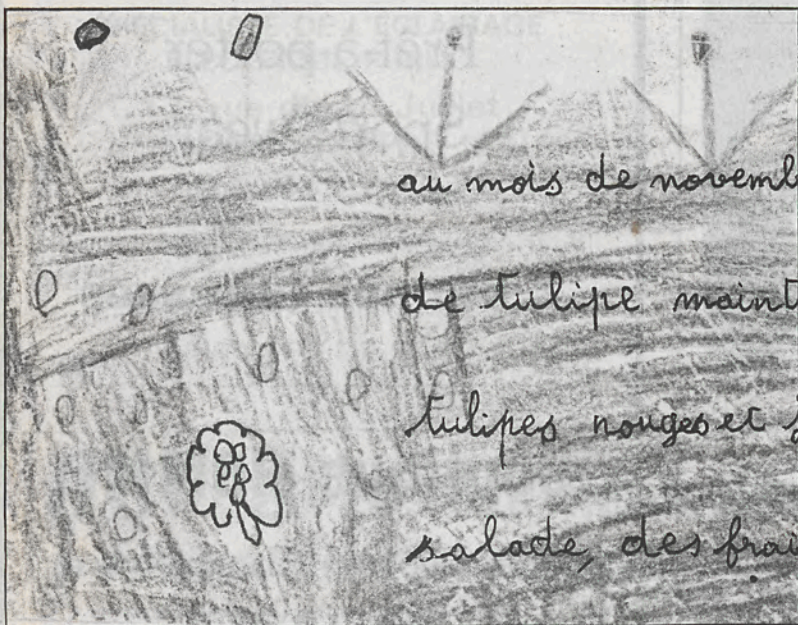 au mois de novemb
de tulipe maint
tulipes rouges et j
salade, des frai